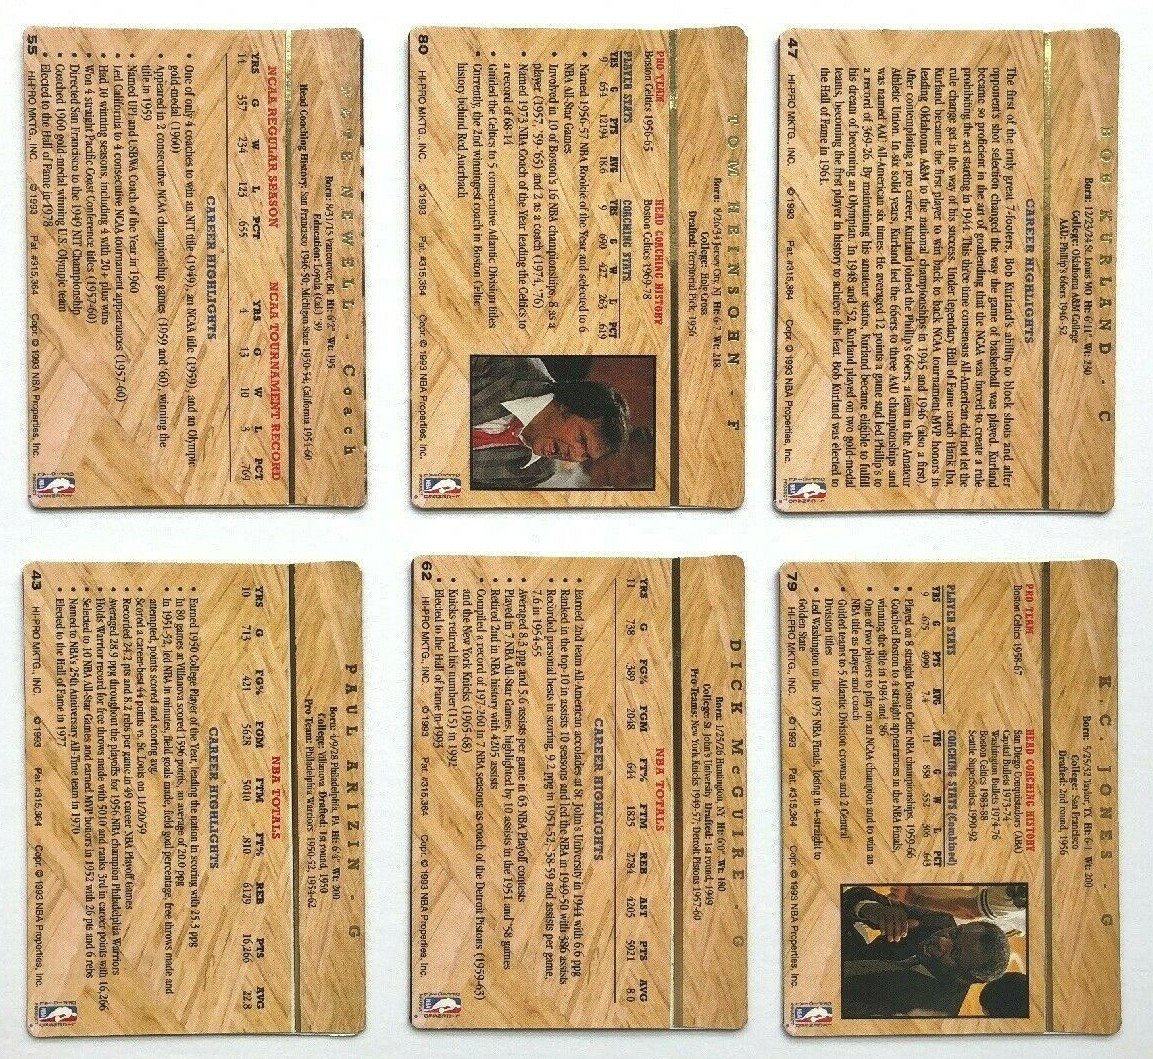 BOB KURLAND - C
Born: 12/23/24 St. Louis MO Ht: 6'11", Wt: 230
College: Oklahoma A&M College
AAU: Phillip's 66ers 1946-52
CAREER HIGHLIGHTS
The first of the truly great 7-footers, Bob Kurland's ability to block shots and alter
opponent's shot selection changed the way the game of basketball was played. Kurland
became so proficient in the art of goaltending that the NCAA was forced to create a rule
prohibiting the act starting in 1944. This three time consensus All-American did not let the
rule change get in the way of his success. Under legendary Hall of Fame coach Hank Iba,
Kurland became the first player to win back to back NCAA tournament MVP honors in
leading Oklahoma A&M to the national championships in 1945 and 1946 (also a first)
After contemplating a pro career, Kurland joined the Phillip's 66ers, a team in the Amateur
Athletic Union. In six solid years, Kurland led the 66ers to three AAU championships and
was named AAU All-American six times. He averaged 12 points a game and led Phillip's to
a record of 369-26. By maintaining his amateur status, Kurland became eligible to fulfill
his dream of becoming an Olympian. In 1948 and '52, Kurland played on two gold-medal
teams, becoming the first player in history to achieve this feat. Bob Kurland was elected to
the Hall of Fame in 1961.
47 HI-PRO MKTG., INC. ©1993 Pat. #315,364 Copr. © 1993 NBA Properties, Inc.
NBA
K.C. JONES - G
Born: 5/25/32 Taylor, TX Ht: 6-1 Wt: 200
College: San Francisco
Drafted: 2nd round, 1956
PRO TEAM
Boston Celtics 1958-67
HEAD COACHING HISTORY
San Diego Conquistadors (ABA)
Capital Bullets 1973-74
Washington Bullets 1974-76
Boston Celtics 1983-88
Seattle SuperSonics 1990-92
PLAYER STATS
YRS G PTS AVG
9 675 4999 7.4
COACHING STATS (Combined)
YRS G W L PCT
11 858 552 306 .643
• Played on 8 straight Boston Celtic NBA championships, 1959-66
• Coached Boston to 4 straight appearances in the NBA Finals,
winning the title in 1984 and '86
• One of two players to play on an NCAA champion and to win an
NBA title as player and coach
• Guided teams to 5 Atlantic Division crowns and 2 Central
Division titles
• Led Washington to the 1975 NBA Finals, losing in 4-straight to
Golden State
79 HI-PRO MKTG., INC. ©1993 Pat. #315,364 Copr. © 1993 NBA Properties, Inc.
NBA
TOM HEINSOHN - F
Born: 8/26/34 Jersey City, NJ Ht: 6-7 Wt: 218
College: Holy Cross
Drafted: Territorial Pick, 1956
PRO TEAM
Boston Celtics 1956-65
HEAD COACHING HISTORY
Boston Celtics 1969-78
PLAYER STATS
YRS G PTS AVG
9 654 12194 18.6
COACHING STATS
YRS G W L PCT
9 690 427 263 .619
• Named 1956-57 NBA Rookie of the Year and selected to 6
NBA All-Star Games
• Involved in 10 of Boston's 16 NBA championships, 8 as a
player (1957, '59-'65) and 2 as a coach (1974, '76)
• Named 1973 NBA Coach of the Year leading the Celtics to
a record of 68-14
• Guided the Celtics to 5 consecutive Atlantic Division titles
• Currently, the 2nd winningest coach in Boston Celtic
history behind Red Auerbach
80 HI-PRO MKTG., INC. ©1993 Pat. #315,364 Copr. © 1993 NBA Properties, Inc.
NBA
DICK McGUIRE - G
Born: 1/25/26 Huntington, NY Ht: 6'0" Wt: 180
College: St. John's University Drafted 1st round, 1949
Pro Teams: New York Knicks 1949-57; Detroit Pistons 1957-60
NBA TOTALS
YRS G FG% FGM FT% FTM REB AST PTS AVG
11 738 .389 2048 .644 1825 2784 4205 5921 8.0
CAREER HIGHLIGHTS
• Earned 2nd team All-American accolades at St. John's University in 1944 with 6.6 ppg
• Ranked in the top-10 in assists 10 seasons and led the NBA in 1949-50 with 386 assists
• Recorded personal bests in scoring, 9.2 ppg in 1951-52, '58-59 and assists per game,
7.6 in 1954-55
• Averaged 8.3 ppg and 5.6 assists per game in 63 NBA Playoff contests
• Played in 7 NBA All-Star Games, highlighted by 10 assists in the 1951 and '58 games
• Retired 2nd in NBA history with 4205 assists
• Compiled a record of 197-260 in 7 NBA seasons as coach of the Detroit Pistons (1959-63)
and the New York Knicks (1965-68)
• Knicks retired his number (15) in 1992
• Elected to the Hall of Fame in 1993
62 HI-PRO MKTG., INC. ©1993 Pat. #315,364 Copr. © 1993 NBA Properties, Inc.
NBA
PETE NEWELL - Coach
Born: 8/31/15 Vancouver, BC Ht: 6'2" Wt: 195
Education: Loyola (Cal.) '39
Head Coaching History: San Francisco 1946-50; Michigan State 1950-54; California 1954-60
NCAA REGULAR SEASON
YRS G W L PCT
14 357 234 123 .655
NCAA TOURNAMENT RECORD
YRS G W L PCT
4 13 10 3 .769
CAREER HIGHLIGHTS
• One of only 4 coaches to win an NIT title (1949), an NCAA title (1959), and an Olympic
gold-medal (1960)
• Appeared in 2 consecutive NCAA championship games (1959 and '60), winning the
title in 1959
• Named UPI and USBWA Coach of the Year in 1960
• Led California to 4 consecutive NCAA tournament appearances (1957-60)
• Had 10 winning seasons, including 4 with 20+ plus wins
• Won 4 straight Pacific Coast Conference titles (1957-60)
• Directed San Francisco to the 1949 NIT Championship
• Coached 1960 gold-medal winning U.S. Olympic team
• Elected to the Hall of Fame in 1978
55 HI-PRO MKTG., INC. ©1993 Pat. #315,364 Copr. © 1993 NBA Properties, Inc.
NBA
PAUL ARIZIN - G
Born: 4/9/28 Philadelphia, PA Ht: 6'4" Wt: 200
College: Villanova Drafted: 1st round, 1950
Pro Team: Philadelphia Warriors 1950-52, 1954-62
NBA TOTALS
YRS G FG% FGM FTM FT% REB PTS AVG
10 713 .421 5628 5010 .810 6129 16,266 22.8
CAREER HIGHLIGHTS
• Earned 1950 College Player of the Year, leading the nation in scoring with 25.3 ppg
• In 80 games at Villanova scored 1596 points, an average of 20.0 ppg
• In 1951-52, led NBA in minutes, field goals made, field goal percentage, free throws made and
attempted, points scored and scoring avg.
• Scored a career-best 44 points vs. St. Louis on 11/20/59
• Recorded 24.2 pts and 8.2 rebs per game in 49 career NBA Playoff Games
• Averaged 28.9 ppg throughout the playoffs for 1956 NBA champion Philadelphia Warriors
• Holds Warrior record for free throws made with 5010 and ranks 3rd in career points with 16,266
• Selected to 10 NBA All-Star Games and earned MVP honors in 1952 with 26 pts and 6 rebs
• Named to NBA's 25th Anniversary All-Time team in 1970
• Elected to the Hall of Fame in 1977
43 HI-PRO MKTG., INC. ©1993 Pat. #315,364 Copr. © 1993 NBA Properties, Inc.
NBA